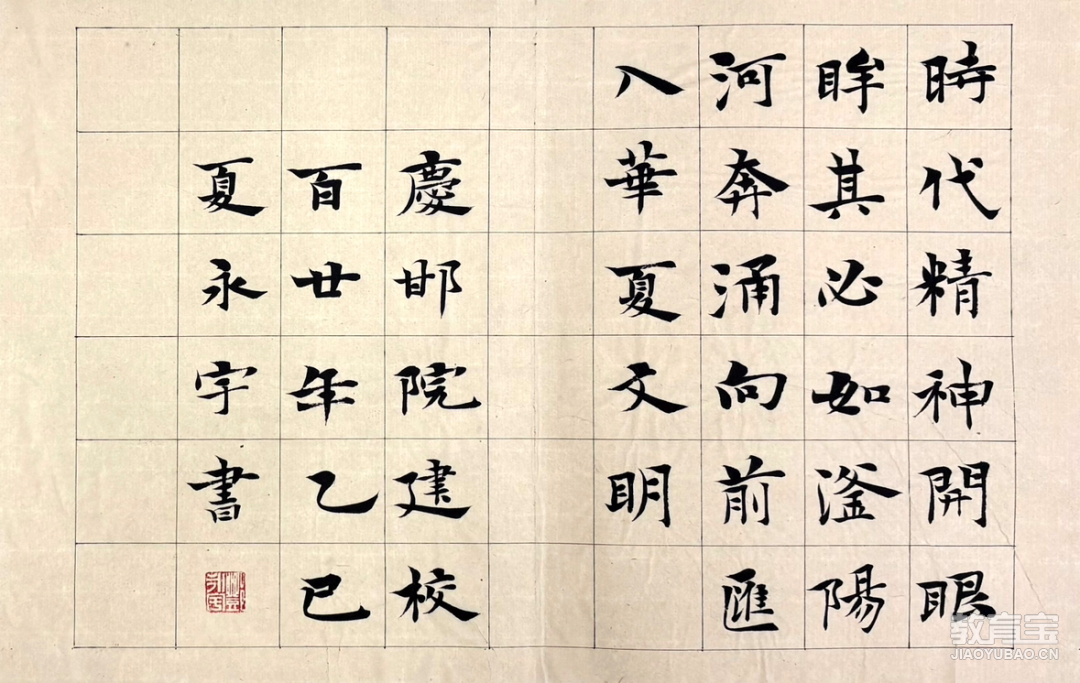 時代精神開眼
眸其必如滏陽
河奔涌向前匯
入華夏文明
慶邯院建校
百廿年乙巳
夏永宇書
教育宝
JIAOYUBAO.CN